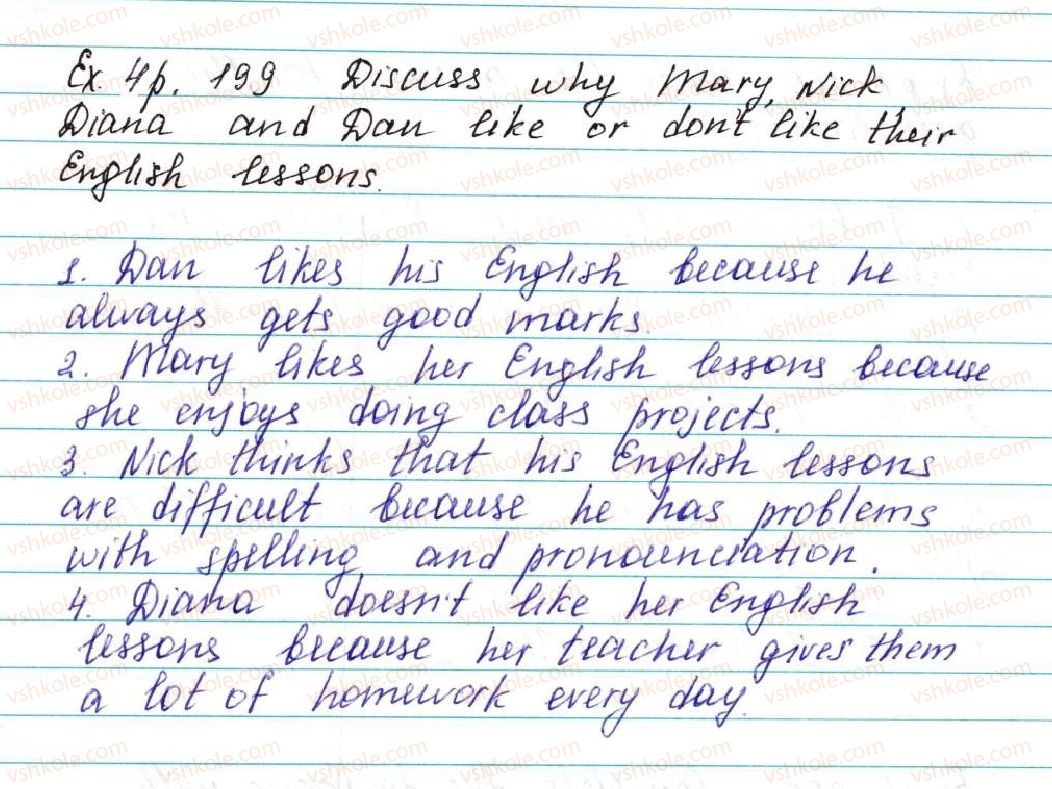 Ex. 4p. 199 Discuss why Mary, Nick
Diana and Dan like or don't like their
English lessons.
1. Dan likes his English because he
always gets good marks.
2. Mary likes her English lessons because
she enjoys doing class projects.
3. Nick thinks that his English lessons
are difficult because he has problems
with spelling and pronounciation.
4. Diana doesn't like her English
lessons because her teacher gives them
a lot of homework every day.
vshkole.com